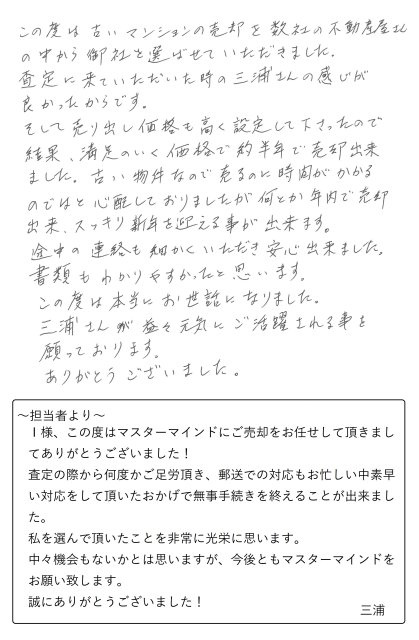 この度は古いマンションの売却を数社の不動産屋さん
の中から御社を選ばせていただきました。
査定に来ていただいた時の三浦さんの感じが
良かったからです。
そして売り出し価格も高く設定して下さったので
結果、満足のいく価格で約半年で売却出来
ました。古い物件なので売るのに時間がかかる
のではと心配しておりましたが何とか年内で売却
出来、スッキリ新年を迎える事が出来ます。
途中の連絡も細かくいただき安心出来ました。
書類もわかりやすかったと思います。
この度は本当にお世話になりました。
三浦さんが益々元気にご活躍される事を
願っております。
ありがとうございました。
～担当者より～
I様、この度はマスターマインドにご売却をお任せして頂きまし
てありがとうございました！
査定の際から何度かご足労頂き、郵送での対応もお忙しい中素早
い対応をして頂いたおかげで無事手続きを終えることが出来まし
た。
私を選んで頂いたことを非常に光栄に思います。
中々機会もないかとは思いますが、今後ともマスターマインドを
お願い致します。
誠にありがとうございました！
三浦